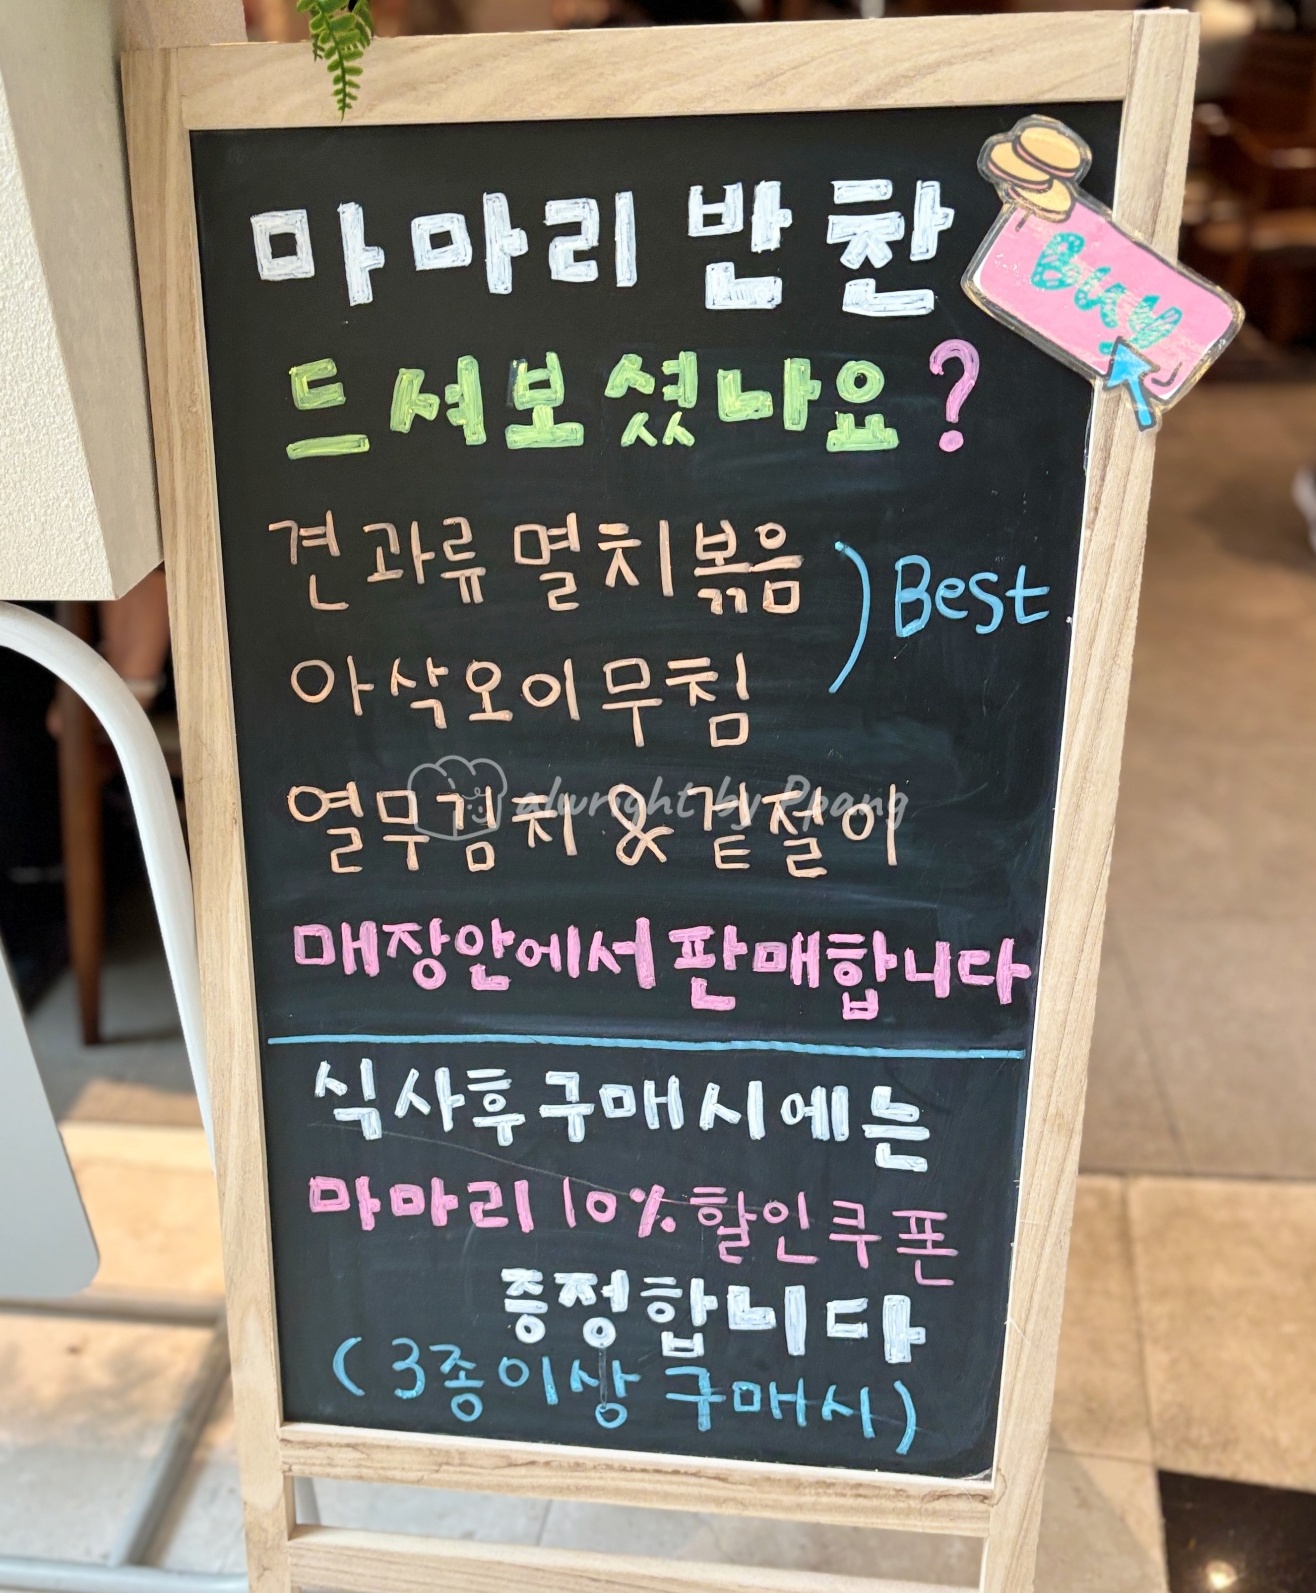 마마리 반찬
Buy
드셔보셨나요?
견과류 멸치볶음
Best
아삭오이무침
alwright by Ppang
열무김치 & 겉절이
매장안에서 판매합니다
식사후 구매시에는
마마리 10% 할인쿠폰
증정합니다
(3종이상 구매시)